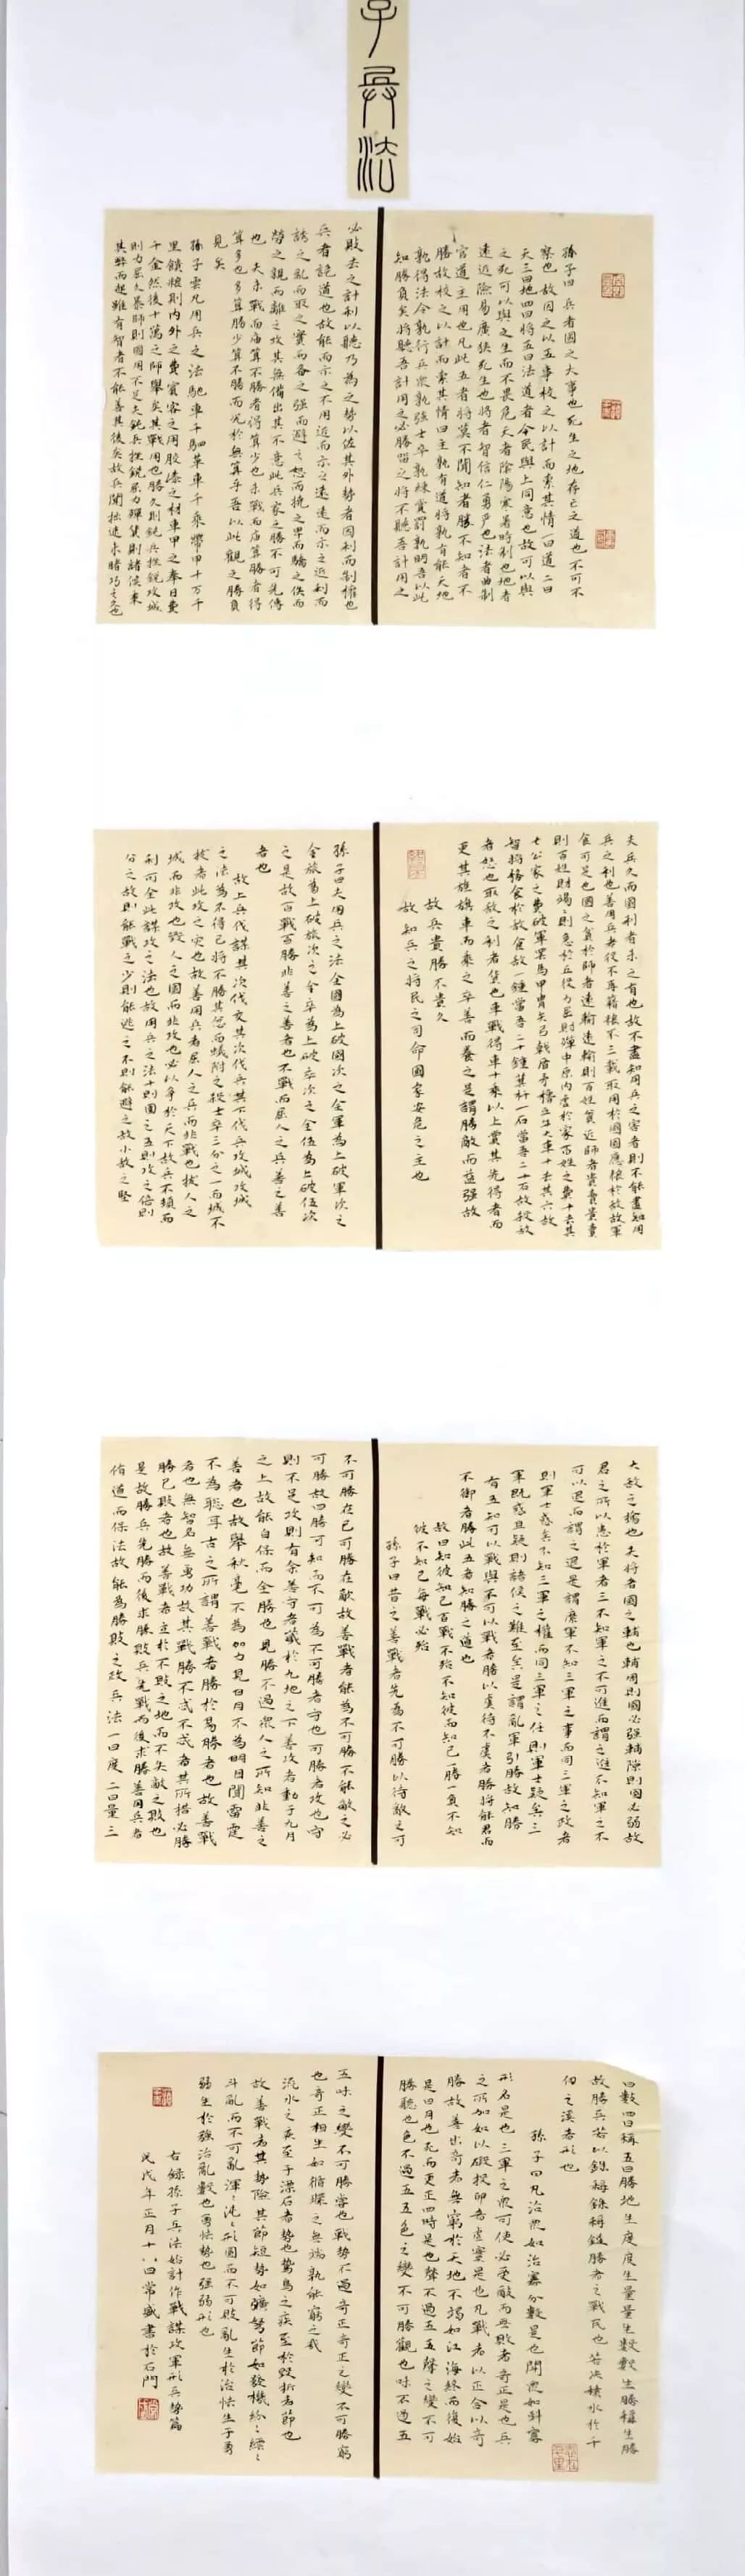 子兵法
孫子曰兵者國之大事也死生之地存亡之道也不可不
察也故因之以五事校之以計而索其情一曰道二曰
天三曰地四曰將五曰法道者令民與上同意也故可以與
之死可以與之生而不畏危天者陰陽寒暑時制也地者
遠近險易廣狹死生也將者智信仁勇嚴也法者曲制
官道主用也凡此五者將莫不聞知者勝不知者不
勝故校之以計而索其情曰主孰有道將孰有能天地
孰得法令孰行兵眾孰強士卒孰練賞罰孰明吾以此
知勝負矣將聽吾計用之必勝留之將不聽吾計用之
必敗去之計利以聽乃為之勢以佐其外勢者因利而制權也
兵者詭道也故能而示之不用近而示之遠遠而示之近利而
誘之亂而取之實而備之強而避之怒而撓之卑而驕之佚而
勞之親而離之攻其無備出其不意此兵家之勝不可先傳
也夫未戰而廟算不勝者得算少也未戰而廟算勝者得
算多也多算勝少算不勝而況於無算乎吾以此觀之勝負
見矣
孫子雲凡用兵之法馳車千駟革車千乘帶甲十萬千
里饋糧則內外之費賓客之用膠漆之材車甲之奉日費
千金然後十萬之師舉矣其戰用也勝久則鈍兵挫銳攻城
則力屈久暴師則國用不足夫鈍兵挫銳屈力殫貨則諸侯乘
其弊而起雖有智者不能善其後矣故兵聞拙速未睹巧之久也
夫兵久而國利者未之有也故不盡知用兵之害者則不能盡知用
兵之利也善用兵者役不再籍糧不三載取用於國因糧於敵故軍
食可足也國之貧於師者遠輸遠輸則百姓貧近師者貴賣貴賣
則百姓財竭財竭則急於丘役力屈財殫中原內虛於家百姓之費十去其
七公家之費破軍罷馬甲胄矢弓戟盾矛櫓丘牛大車十去其六故
智將務食於敵食敵一鍾當吾二十鍾萁秆一石當吾二十石故殺敵
者怒也取敵之利者貨也車戰得車十乘以上賞其先得者而
更其旌旗車而乘之卒善而養之是謂勝敵而益強故
故兵貴勝不貴久
故知兵之將民之司命國家安危之主也
孫子曰夫用兵之法全國為上破國次之全軍為上破軍次之
全旅為上破旅次之全卒為上破卒次之全伍為上破伍次
之是故百戰百勝非善之善者也不戰而屈人之兵善之善
者也
故上兵伐謀其次伐交其次伐兵其下攻城攻城
之法為不得已將不勝其忿而蟻附之殺士卒三分之一而城不
拔者此攻之災也故善用兵者屈人之兵而非戰也拔人之
城而非攻也毀人之國而非攻也必以爭於天下故兵不頓而
利可全此謀攻之法也故用兵之法十則圍之五則攻之倍則
分之敵則能戰之少則能逃之不則能避之故小敵之堅
大敵之擒也夫將者國之輔也輔周則國必強輔隙則國必弱故
君之所以患於軍者三不知軍之不可進而謂之進不知軍之不
可以退而謂之退是謂縻軍不知三軍之事而同三軍之政者
則軍士惑矣不知三軍之權而同三軍之任則軍士疑矣三
軍既惑且疑則諸侯之難至矣是謂亂軍引勝故知勝
有五知可以戰與不可以戰者勝以虞待不虞者勝將能君而
不御者勝此五者知勝之道也
故曰知彼知己百戰不殆不知彼而知己一勝一負不知
彼不知己每戰必殆
孫子曰昔之善戰者先為不可勝以待敵之可
不可勝在己可勝在敵故善戰者能為不可勝不能敵之必
可勝故曰勝可知而不可為不可勝者守也可勝者攻也守
則不足攻則有余善守者藏於九地之下善攻者動于九月
之上故能自保而全勝也見勝不過眾人之所知非善之
善者也故舉秋毫不為加力見日月不為明目聞雷霆
不為聰耳古之所謂善戰者勝於易勝者也故善戰
者也無智名無勇功故其戰勝不忒不忒者其所措必勝
勝已敗者也故善戰者立於不敗之地而不失敵之敗也
是故勝兵先勝而後求勝敗兵先戰而後求勝善用兵者
修道而保法故能為勝敗之政兵法一曰度二曰量三
曰數四曰稱五曰勝地生度度生量量生數數生勝稱生勝
故勝兵若以銖稱銖稱鎰勝者之戰民也若決積水於千
仞之溪者形也
孫子曰凡治眾如治寡分數是也鬥眾如鬥寡
形名是也三軍之眾可使必受敵而無敗者奇正是也兵
之所加如以碬投卵者虛實是也凡戰者以正合以奇
勝故善出奇者無窮於天地不竭如江海終而復始
是日月也死而更正四時是也聲不過五五聲之變不可
勝聽也色不過五五色之變不可勝觀也味不過五
五味之變不可勝嘗也戰勢不過奇正奇正之變不可勝窮
也奇正相生如循環之無端孰能窮之哉
流水之疾至于漂石者勢也鷙鳥之疾至於毀折者節也
故善戰者其勢險其節短勢如彍弩節如發機紛紛紜紜
斗亂而不可亂渾渾沌沌形圓而不可敗亂生於治怯生于勇
弱生於強治亂數也勇怯勢也強弱形也
右錄孫子兵法始計作戰謀攻軍形兵勢篇
戊年正月十八日常盛書於石門